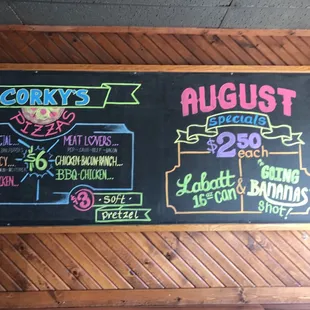 CORKY'S
PIZZAS
MEAT LOVERS...
CHICKEN-BACON-RANCH...
BBQ-CHICKEN...
$6
$3 SOFT
pretzel
AUGUST
specials
$2.50
each
Labatt
16oz CAN
&
"GOING
BANANAS"
Shot!